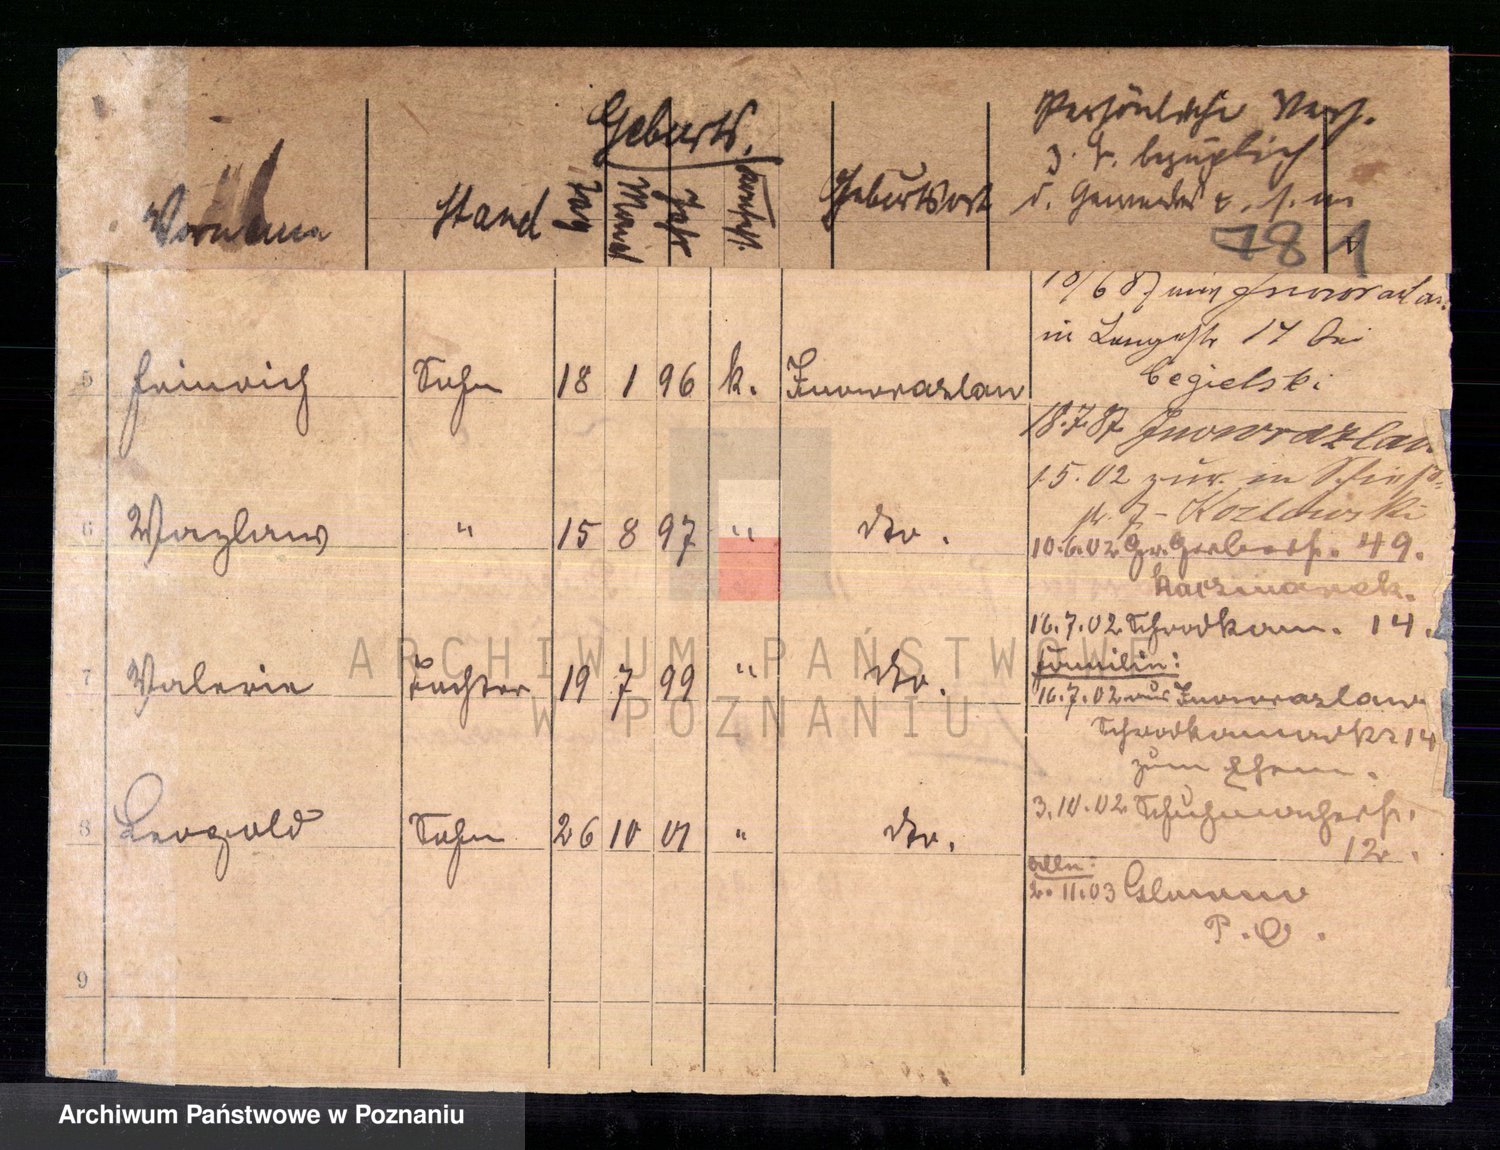 Geburts.
Persönliche Verh.
z. B. bezüglich
d. Gewerbes u. s. w.
Vorname
Stand
Tag
Monat
Jahr
Geburtsort
781
18/6 87 Inowrazlaw
in Langestr 17 bei
Cegielski
5 Heinrich Sohn 18 1 96 k. Inowrazlaw
18.7.87 Inowrazlaw
1.5.02 zur. in
Kozlowski
6 Wazlaw " 15 8 97 " do.
10.6.02 Gr. Gerberstr. 49.
Kaczmarek.
16.7.02 Schrodkam. 14.
Familie:
7 Valerie Tochter 19 7 99 " do.
16.7.02 aus Inowrazlaw
Schrodkamarkt 14
zum Ehem.
3.10.02 Schuhmacherstr.
12.
8 Leopold Sohn 26 10 01 " do.
alle:
2.11.03 Glowno
P. O.
9
ARCHIWUM PAŃSTWOWE
W POZNANIU
Archiwum Państwowe w Poznaniu